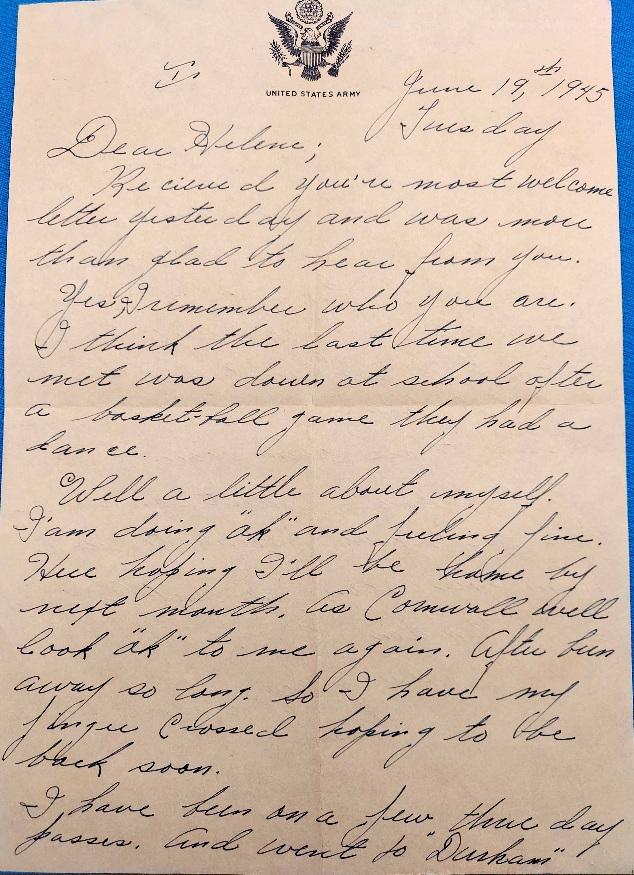 I
UNITED STATES ARMY
June 19,th 1945
Tuesday
Dear Helene;
Recieved you're most welcome
letter yesterday and was more
than glad to hear from you.
Yes, I remember who you are.
I think the last time we
met was down at school after
a basket-ball game they had a
dance.
Well a little about myself.
I'am doing "ok" and feeling fine.
Here hoping I'll be home by
next month. As Cornwall well
look "ok" to me again. After been
away so long. So I have my
finger crossed hoping to be
back soon.
I have been on a few three day
passes. And went to "Durham"